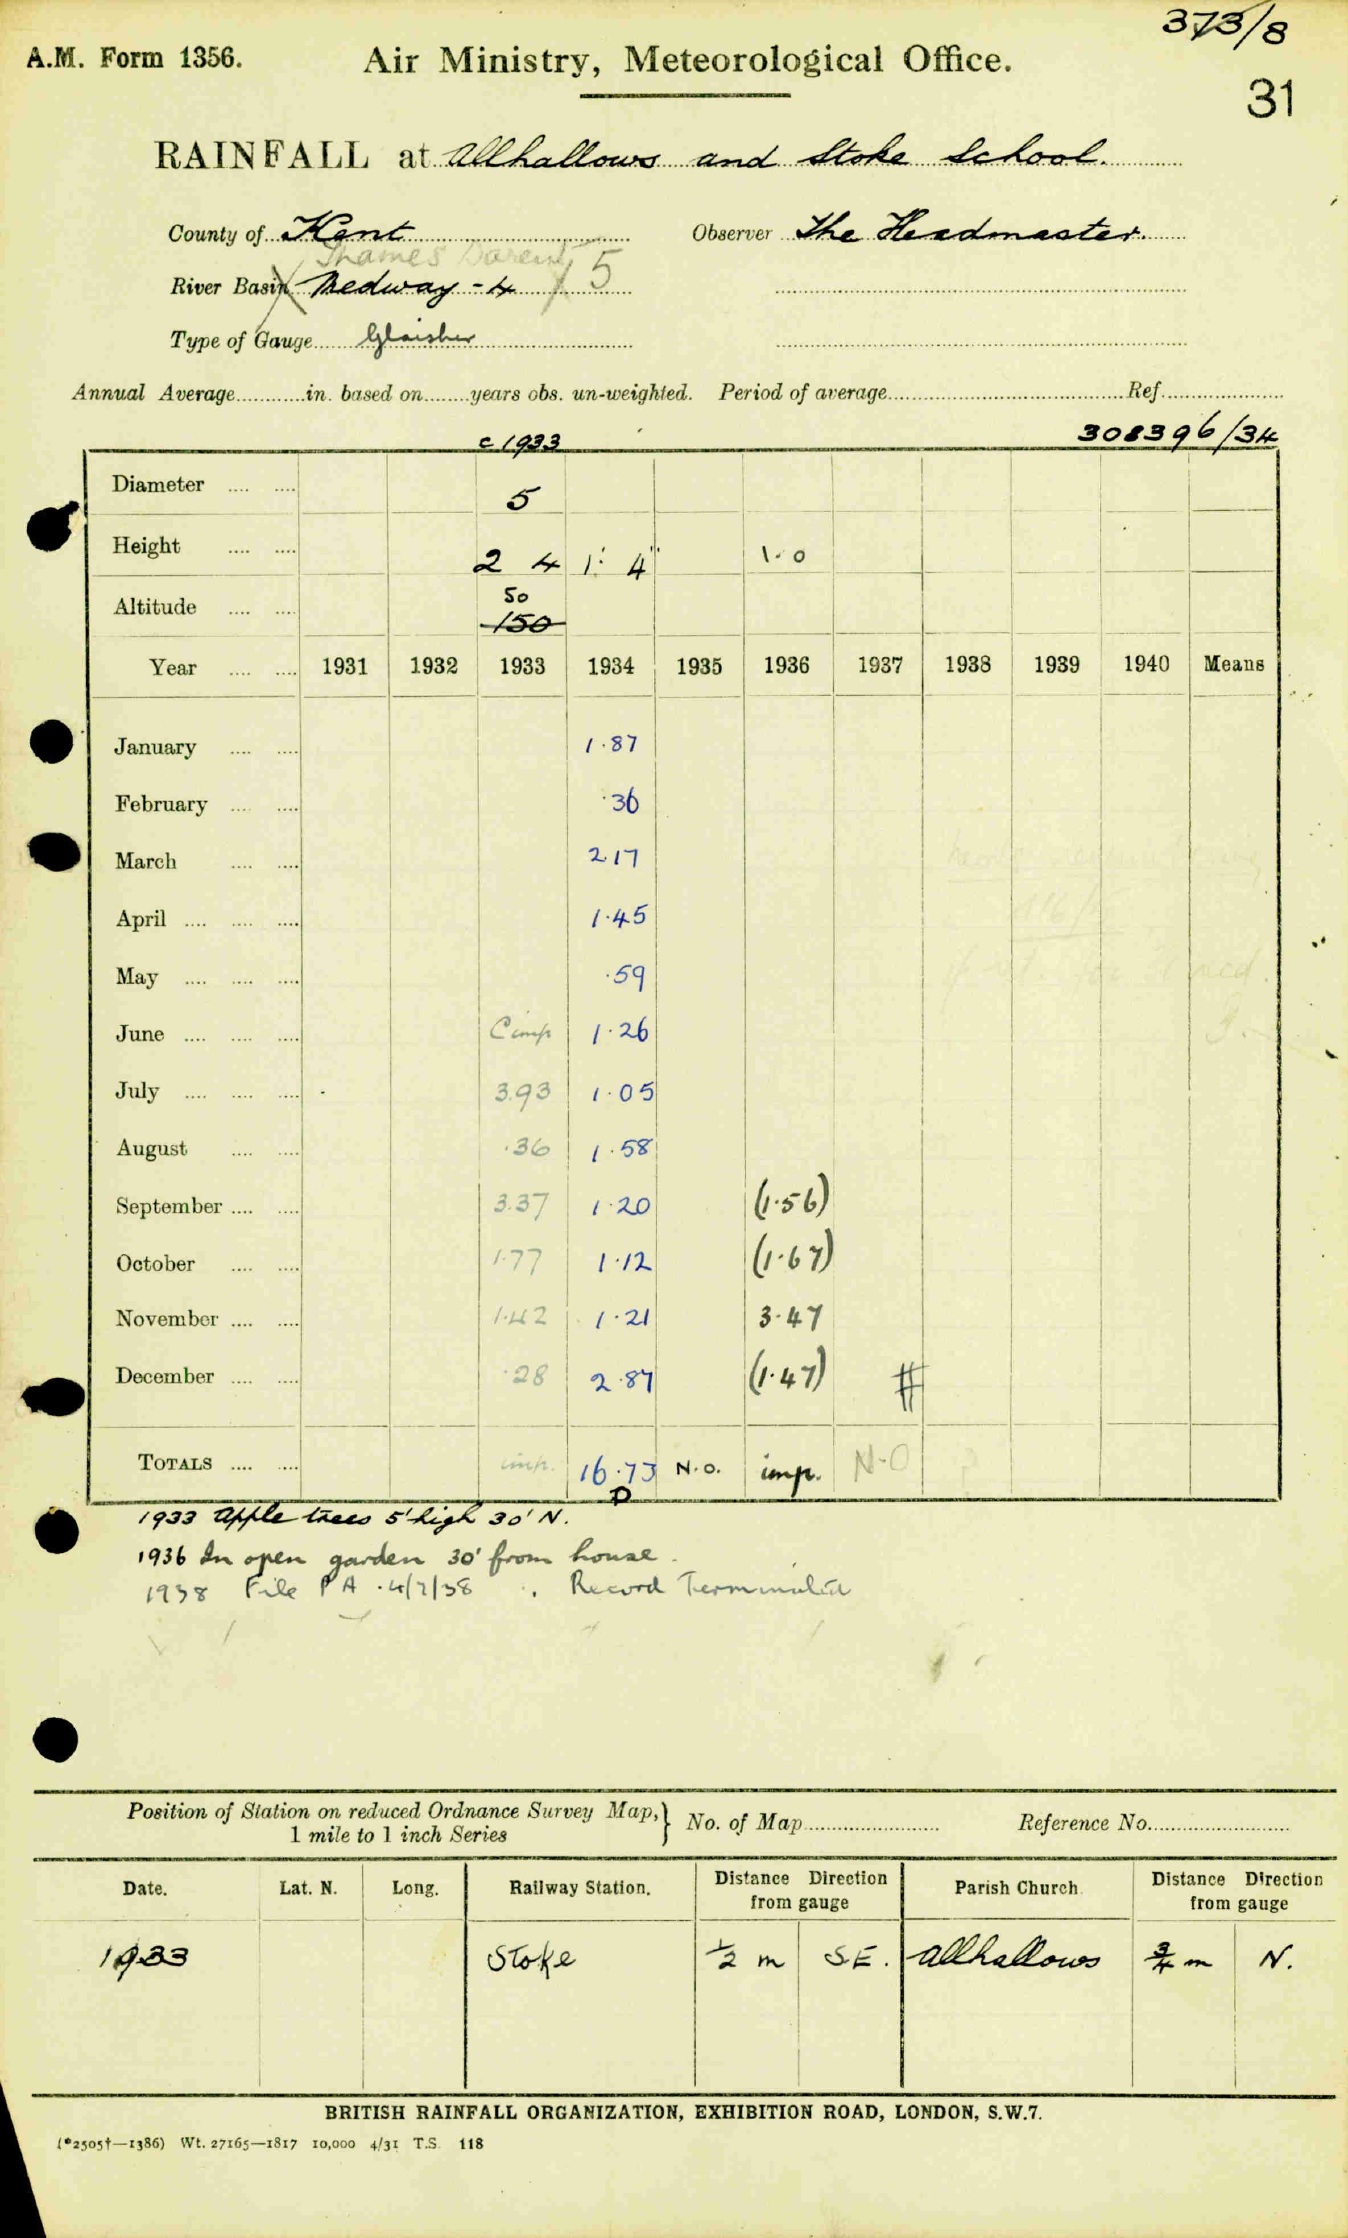 373/8
A.M. Form 1356. Air Ministry, Meteorological Office.
31
RAINFALL at Allhallows and Stoke School.
County of Kent Observer The Headmaster.
Thames Darent 5
River Basin Medway - 4
Type of Gauge Glaisher
Annual Average............in. based on........years obs. un-weighted. Period of average............Ref............
c 1933 308396/34
Diameter .... .... 5
Height .... .... 2 4 1' 4" 1. 0
Altitude .... .... 50 150
Year .... .... 1931 1932 1933 1934 1935 1936 1937 1938 1939 1940 Means
January .... .... 1.87
February .... .... .36
March .... .... 2.17
April .... .... .... 1.45
May .... .... .... .59
June .... .... .... C imp 1.26
July .... .... .... 3.93 1.05
August .... .... .36 1.58
September .... .... 3.37 1.20 (1.56)
October .... .... 1.77 1.12 (1.67)
November .... .... 1.42 1.21 3.47
December .... .... .28 2.87 (1.47) #
TOTALS .... .... imp. 16.73 N.O. imp. N.O
D
1933 Apple trees 5' high 30' N.
1936 In open garden 30' from house.
1938 File P A . 4/7/38 . Record Terminated
Position of Station on reduced Ordnance Survey Map, } No. of Map............ Reference No............
1 mile to 1 inch Series
Date. Lat. N. Long. Railway Station. Distance Direction from gauge Parish Church Distance Direction from gauge
1933 Stoke 1/2 m S.E. Allhallows 3/4 m N.
BRITISH RAINFALL ORGANIZATION, EXHIBITION ROAD, LONDON, S.W.7.
(*2505†—1386) Wt. 27165—1817 10,000 4/31 T.S. 118